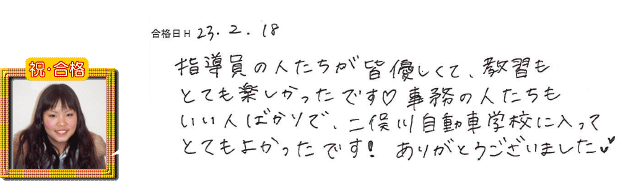 合格日 H 23.2.18
祝・合格
指導員の人たちが皆優しくて、教習も
とても楽しかったです♡事務の人たちも
いい人ばかりで、二俣川自動車学校に入って
とてもよかったです！ありがとうございました♥